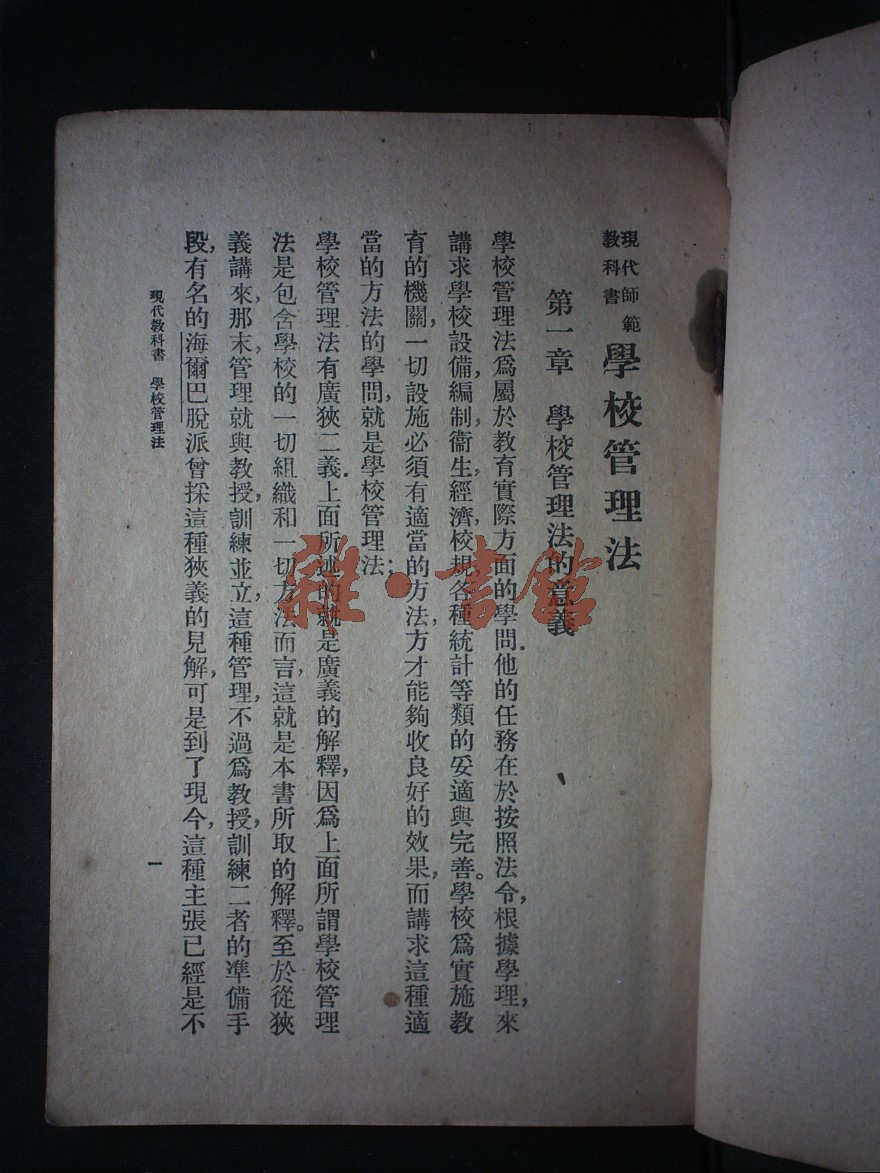 現代師範
教科書
學校管理法
第一章　學校管理法的意義
學校管理法爲屬於教育實際方面的學問.他的任務在於按照法令,根據學理,來
講求學校設備,編制,衞生,經濟,校規,各種統計等類的妥適與完善。學校爲實施教
育的機關,一切設施必須有適當的方法,方才能夠收良好的效果,而講求這種適
當的方法的學問,就是學校管理法;
學校管理法有廣狹二義.上面所述的就是廣義的解釋,因爲上面所謂學校管理
法是包含學校的一切組織和一切方法而言,這就是本書所取的解釋。至於從狹
義講來,那末,管理就與教授,訓練並立,這種管理,不過爲教授,訓練二者的準備手
段,有名的海爾巴脫派曾採這種狹義的見解,可是到了現今,這種主張已經是不
現代教科書　學校管理法
一
雜·書館